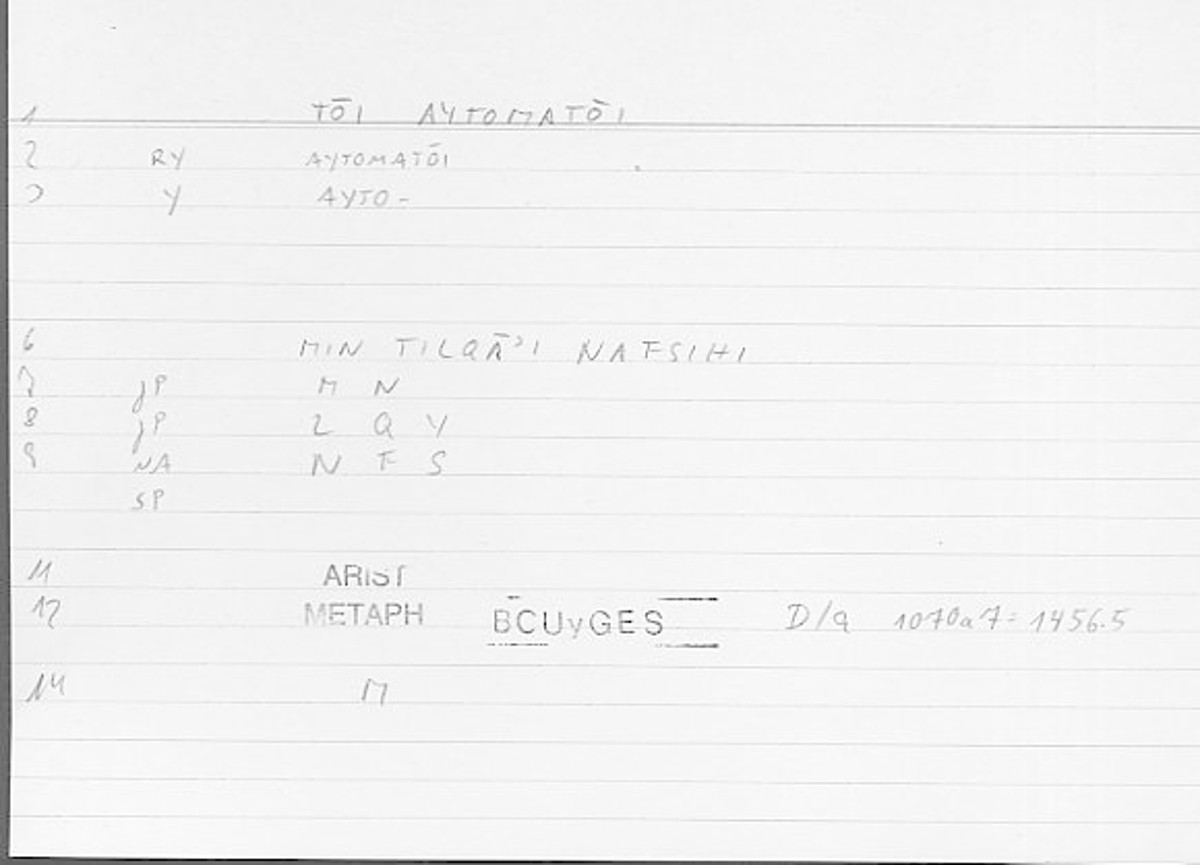 1 TŌI AYTOMATŌI
2 RY AYTOMATŌI
3 Y AYTO-
6 MIN TILQĀ'I NAFSIHI
7 jP M N
8 jP L Q Y
9 NA N F S
SP
11 ARIST
12 METAPH BCUyGES D/a 1070a7=1456.5
14 M